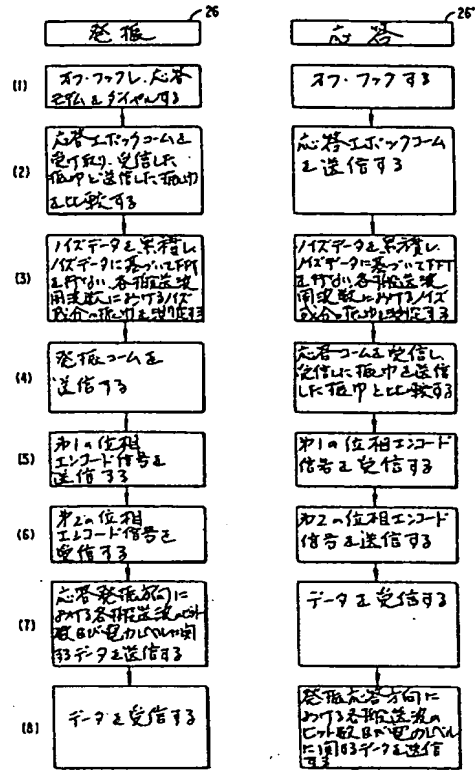 26
発振
(1)
オフ・フックし、応答
モデムをダイヤルする
(2)
応答エポックコームを
受け取り、受信した
振巾と送信した振巾
を比較する
(3)
ノイズデータを累積し、
ノイズデータに基づいてFFT
を行ない、各搬送波
周波数におけるノイズ
成分の振巾を測定する
(4)
発振コームを
送信する
(5)
第1の位相
エンコード信号を
送信する
(6)
第2の位相
エンコード信号を
受信する
(7)
応答発振方向に
おける各搬送波のビット
数及び電力レベルに関
するデータを送信する
(8)
データを受信する
26
応答
オフ・フックする
応答エポックコーム
を送信する
ノイズデータを累積し、
ノイズデータに基づいてFFT
を行ない、各搬送波
周波数におけるノイズ
成分の振巾を測定する
応答コームを受信し、
受信した振巾を送信
した振巾と比較する
第1の位相エンコード
信号を受信する
第2の位相エンコード
信号を送信する
データを受信する
発振応答方向に
おける各搬送波の
ビット数及び電力レベル
に関するデータを送信
する